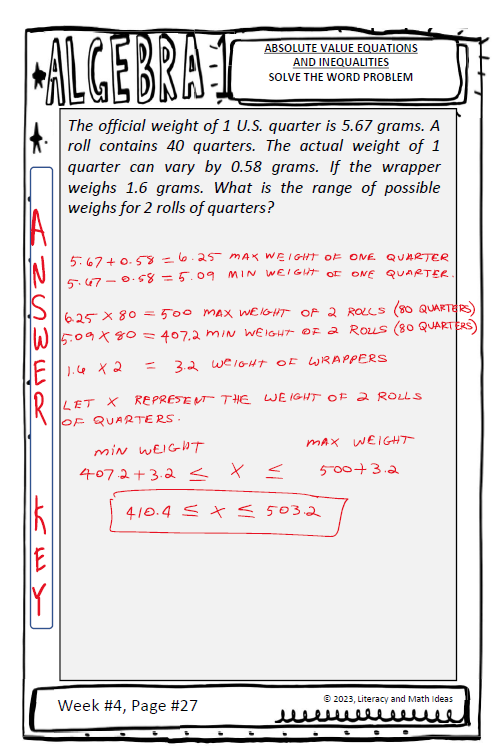 ALGEBRA
ABSOLUTE VALUE EQUATIONS
AND INEQUALITIES
SOLVE THE WORD PROBLEM
The official weight of 1 U.S. quarter is 5.67 grams. A
roll contains 40 quarters. The actual weight of 1
quarter can vary by 0.58 grams. If the wrapper
weighs 1.6 grams. What is the range of possible
weighs for 2 rolls of quarters?
ANSWER KEY
5.67 + 0.58 = 6.25 MAX WEIGHT OF ONE QUARTER
5.67 - 0.58 = 5.09 MIN WEIGHT OF ONE QUARTER.
6.25 X 80 = 500 MAX WEIGHT OF 2 ROLLS (80 QUARTERS)
5.09 X 80 = 407.2 MIN WEIGHT OF 2 ROLLS (80 QUARTERS)
1.6 X 2 = 3.2 WEIGHT OF WRAPPERS
LET X REPRESENT THE WEIGHT OF 2 ROLLS
OF QUARTERS.
MIN WEIGHT MAX WEIGHT
407.2 + 3.2 ≤ X ≤ 500 + 3.2
410.4 ≤ X ≤ 503.2
Week #4, Page #27
© 2023, Literacy and Math Ideas